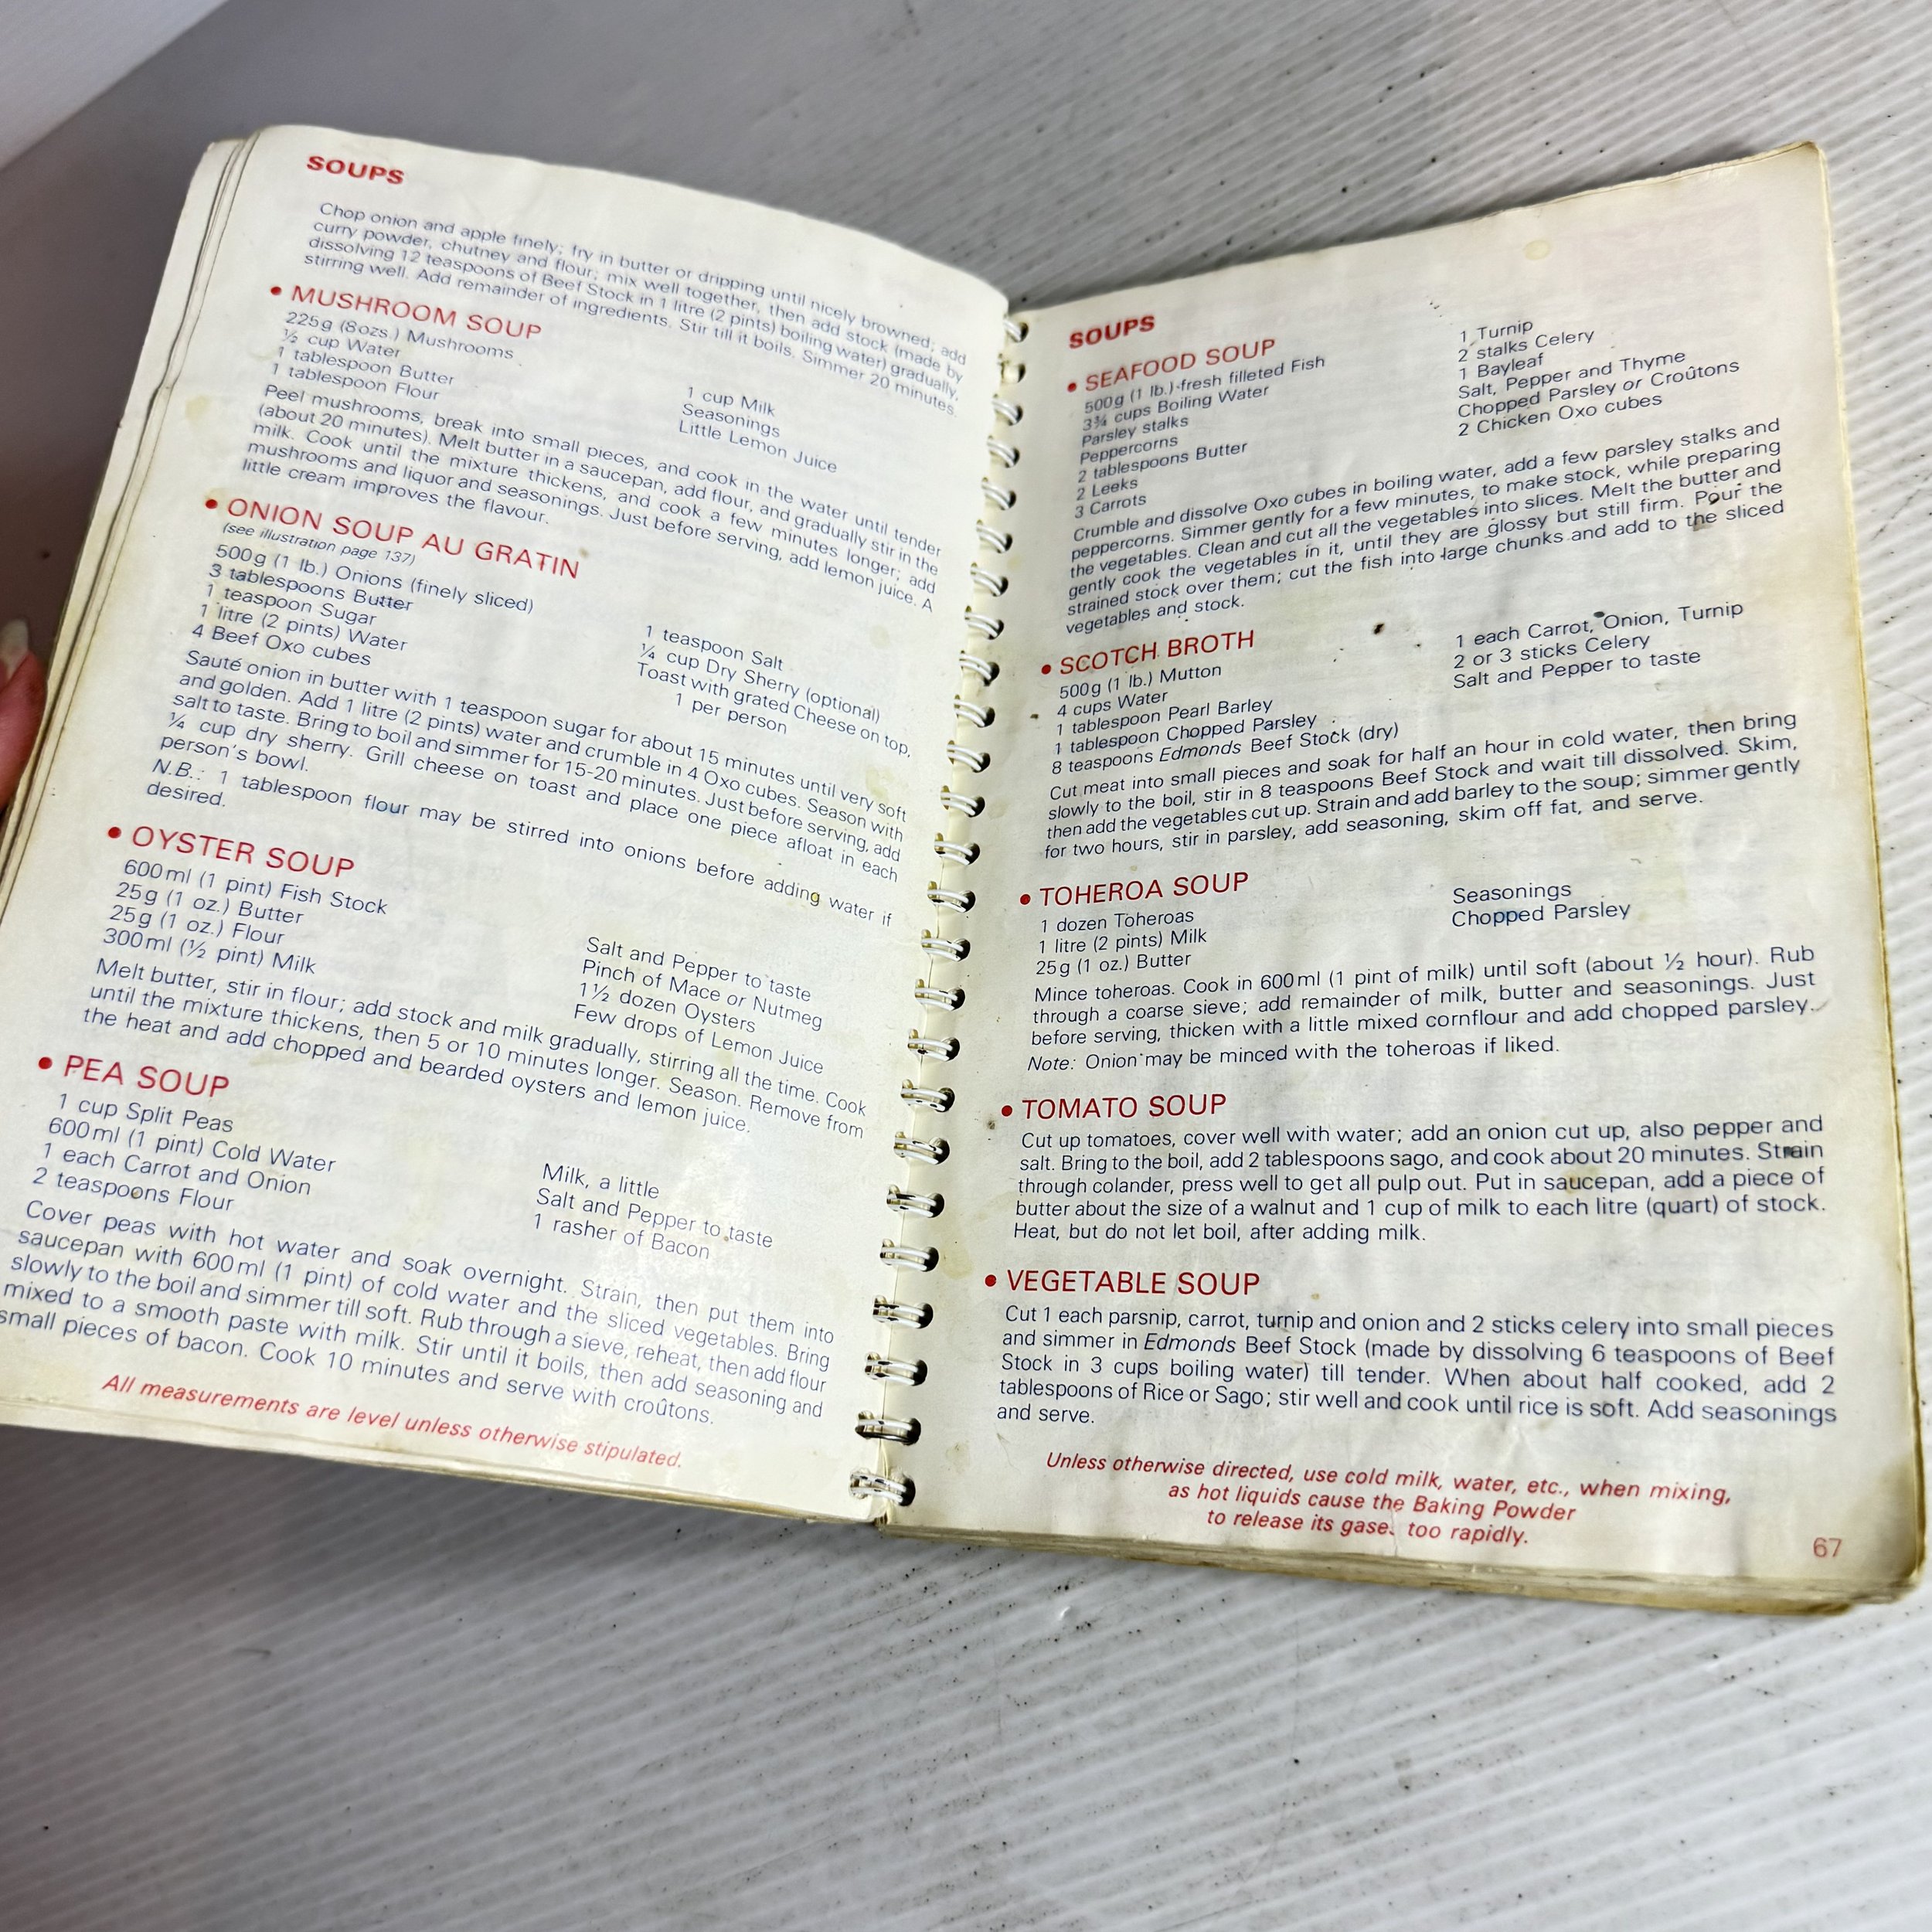 SOUPS
Chop onion and apple finely; fry in butter or dripping until nicely browned; add
curry powder, chutney and flour; mix well together, then add stock (made by
dissolving 12 teaspoons of Beef Stock in 1 litre (2 pints) boiling water) gradually,
stirring well. Add remainder of ingredients. Stir till it boils. Simmer 20 minutes.
• MUSHROOM SOUP
225g (8ozs.) Mushrooms
½ cup Water
1 tablespoon Butter
1 tablespoon Flour
1 cup Milk
Seasonings
Little Lemon Juice
Peel mushrooms, break into small pieces, and cook in the water until tender
(about 20 minutes). Melt butter in a saucepan, add flour, and gradually stir in the
milk. Cook until the mixture thickens, and cook a few minutes longer; add
mushrooms and liquor and seasonings. Just before serving, add lemon juice. A
little cream improves the flavour.
• ONION SOUP AU GRATIN
(see illustration page 137)
500g (1 lb.) Onions (finely sliced)
3 tablespoons Butter
1 teaspoon Sugar
1 litre (2 pints) Water
4 Beef Oxo cubes
1 teaspoon Salt
¼ cup Dry Sherry (optional)
Toast with grated Cheese on top,
1 per person
Sauté onion in butter with 1 teaspoon sugar for about 15 minutes until very soft
and golden. Add 1 litre (2 pints) water and crumble in 4 Oxo cubes. Season with
salt to taste. Bring to boil and simmer for 15-20 minutes. Just before serving, add
¼ cup dry sherry. Grill cheese on toast and place one piece afloat in each
person's bowl.
N.B.: 1 tablespoon flour may be stirred into onions before adding water if
desired.
• OYSTER SOUP
600ml (1 pint) Fish Stock
25g (1 oz.) Butter
25g (1 oz.) Flour
300ml (½ pint) Milk
Salt and Pepper to taste
Pinch of Mace or Nutmeg
1½ dozen Oysters
Few drops of Lemon Juice
Melt butter, stir in flour; add stock and milk gradually, stirring all the time. Cook
until the mixture thickens, then 5 or 10 minutes longer. Season. Remove from
the heat and add chopped and bearded oysters and lemon juice.
• PEA SOUP
1 cup Split Peas
600ml (1 pint) Cold Water
1 each Carrot and Onion
2 teaspoons Flour
Milk, a little
Salt and Pepper to taste
1 rasher of Bacon
Cover peas with hot water and soak overnight. Strain, then put them into
saucepan with 600ml (1 pint) of cold water and the sliced vegetables. Bring
slowly to the boil and simmer till soft. Rub through a sieve, reheat, then add flour
mixed to a smooth paste with milk. Stir until it boils, then add seasoning and
small pieces of bacon. Cook 10 minutes and serve with croûtons.
All measurements are level unless otherwise stipulated.
SOUPS
• SEAFOOD SOUP
500g (1 lb.) fresh filleted Fish
3¾ cups Boiling Water
Parsley stalks
Peppercorns
2 tablespoons Butter
2 Leeks
3 Carrots
1 Turnip
2 stalks Celery
1 Bayleaf
Salt, Pepper and Thyme
Chopped Parsley or Croûtons
2 Chicken Oxo cubes
Crumble and dissolve Oxo cubes in boiling water, add a few parsley stalks and
peppercorns. Simmer gently for a few minutes, to make stock, while preparing
the vegetables. Clean and cut all the vegetables into slices. Melt the butter and
gently cook the vegetables in it, until they are glossy but still firm. Pour the
strained stock over them; cut the fish into large chunks and add to the sliced
vegetables and stock.
• SCOTCH BROTH
500g (1 lb.) Mutton
4 cups Water
1 tablespoon Pearl Barley
1 tablespoon Chopped Parsley
8 teaspoons Edmonds Beef Stock (dry)
1 each Carrot, Onion, Turnip
2 or 3 sticks Celery
Salt and Pepper to taste
Cut meat into small pieces and soak for half an hour in cold water, then bring
slowly to the boil, stir in 8 teaspoons Beef Stock and wait till dissolved. Skim,
then add the vegetables cut up. Strain and add barley to the soup; simmer gently
for two hours, stir in parsley, add seasoning, skim off fat, and serve.
• TOHEROA SOUP
1 dozen Toheroas
1 litre (2 pints) Milk
25g (1 oz.) Butter
Seasonings
Chopped Parsley
Mince toheroas. Cook in 600ml (1 pint of milk) until soft (about ½ hour). Rub
through a coarse sieve; add remainder of milk, butter and seasonings. Just
before serving, thicken with a little mixed cornflour and add chopped parsley.
Note: Onion may be minced with the toheroas if liked.
• TOMATO SOUP
Cut up tomatoes, cover well with water; add an onion cut up, also pepper and
salt. Bring to the boil, add 2 tablespoons sago, and cook about 20 minutes. Strain
through colander, press well to get all pulp out. Put in saucepan, add a piece of
butter about the size of a walnut and 1 cup of milk to each litre (quart) of stock.
Heat, but do not let boil, after adding milk.
• VEGETABLE SOUP
Cut 1 each parsnip, carrot, turnip and onion and 2 sticks celery into small pieces
and simmer in Edmonds Beef Stock (made by dissolving 6 teaspoons of Beef
Stock in 3 cups boiling water) till tender. When about half cooked, add 2
tablespoons of Rice or Sago; stir well and cook until rice is soft. Add seasonings
and serve.
Unless otherwise directed, use cold milk, water, etc., when mixing,
as hot liquids cause the Baking Powder
to release its gases too rapidly.
67